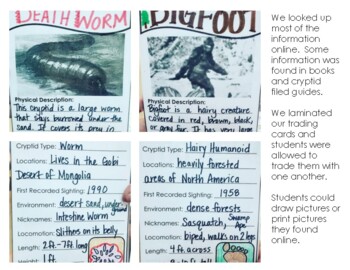 DEATH WORM
Physical Description:
This cryptid is a large worm
that stays burrowed under the
sand. It covers its prey in
BIGFOOT
Physical Description:
Bigfoot is a hairy creature
covered in red, brown, black,
or gray fur. It has very large
Cryptid Type: Worm
Location: Lives in the Gobi
Desert of Mongolia
First Recorded Sighting: 1990
Environment: desert sand, under-
ground
Nicknames: Intestine Worm
Locomotion: Slithers on its belly
Length: 2ft-7ft long
Weight:
Cryptid Type: Hairy Humanoid
Locations: heavily forested
areas of North America
First Recorded Sighting: 1958
Environment: dense forests
Nicknames: Sasquatch, Swamp
Ape
Locomotion: biped, walks on 2 legs
Length: 4ft across
Height: 6-9ft tall
We looked up
most of the
information
online. Some
information was
found in books
and cryptid
filed guides.
We laminated
our trading
cards and
students were
allowed to
trade them with
one another.
Students could
draw pictures or
print pictures
they found
online.